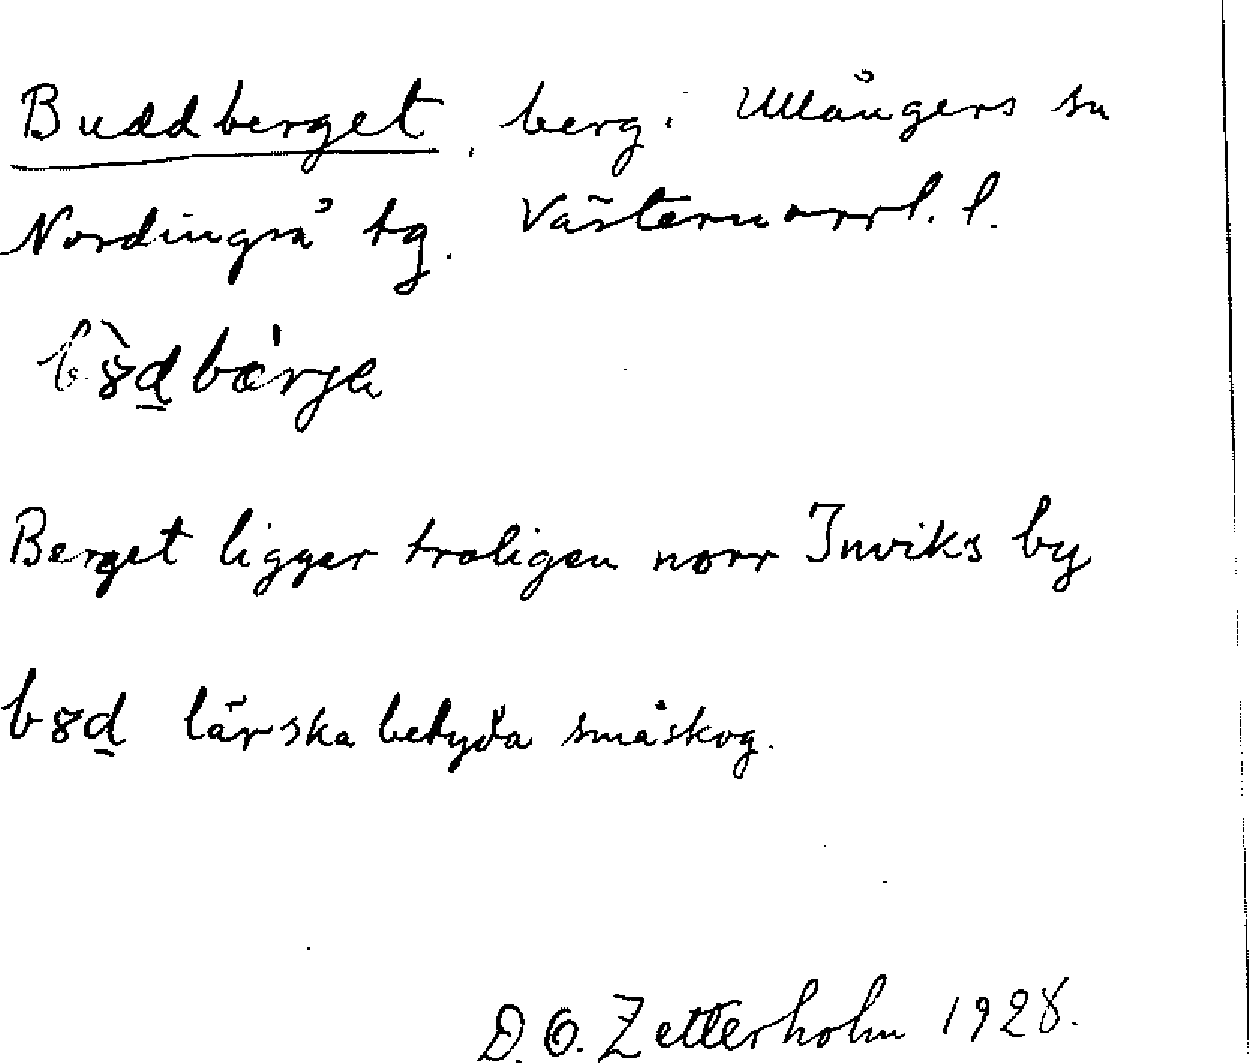 Buddberget, berg. Ullångers sn
Nordingrå tg. Västernorrl. l.
b8̀d̲bǽrja
Berget ligger troligen norr Inviks by
b8d̲ lär ska betyda småskog.
D. O. Zetterholm 1928.